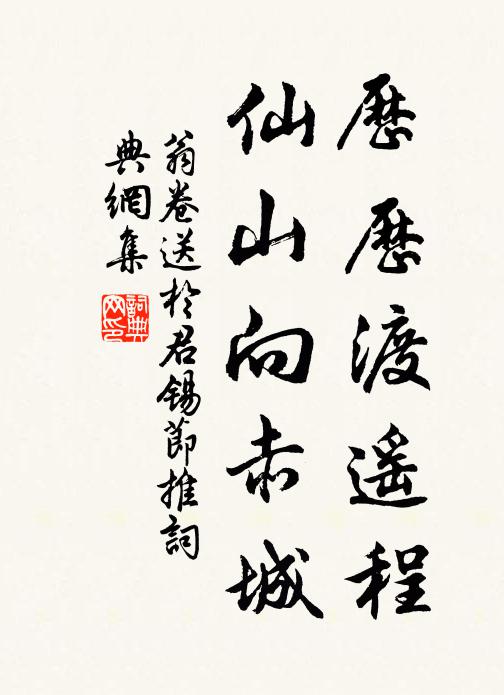 歷歷渡遥程
仙山向赤城
翁卷送於君錫節推詞
典網集
詞典
网印